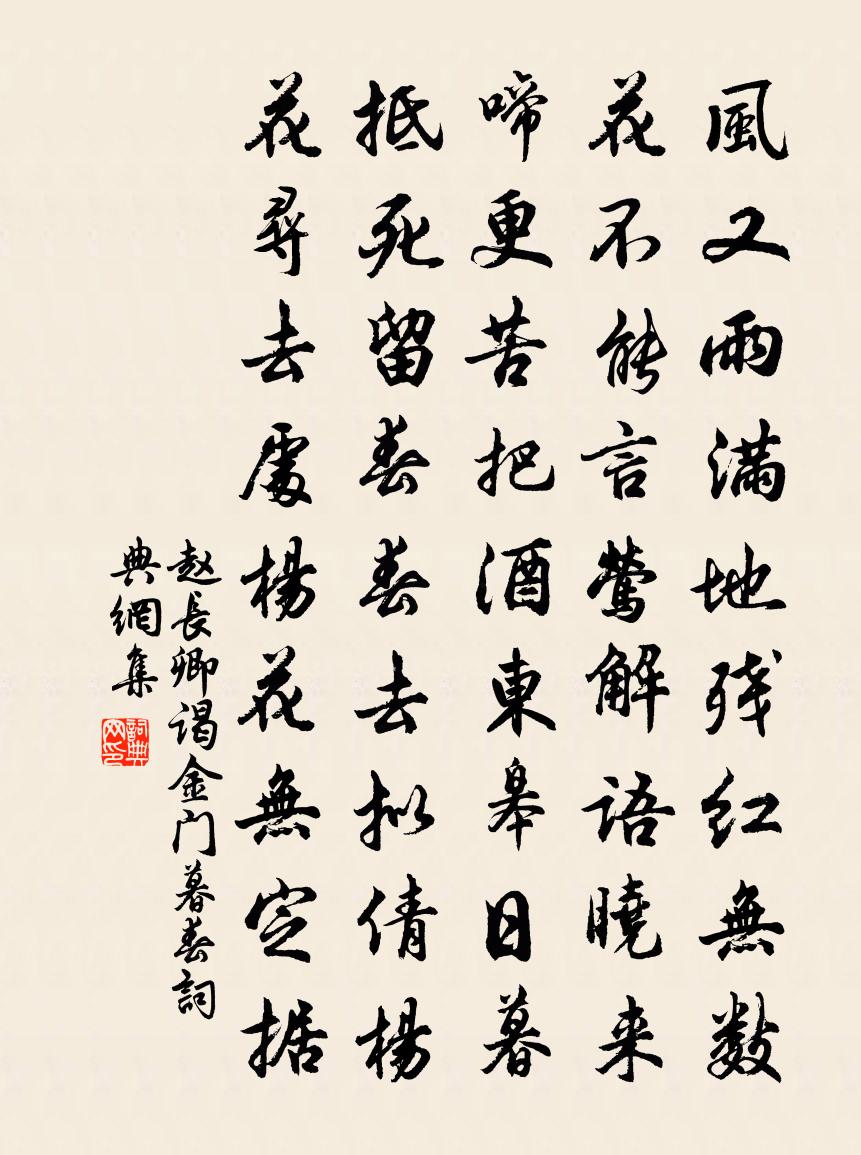 風又雨滿地残红無數
花不能言鶯解語曉来
啼更苦把酒東皋日暮
抵死留春春去拟倩楊
花尋去處楊花無定据
赵長卿谒金门暮春詞
典網集
詞典网印